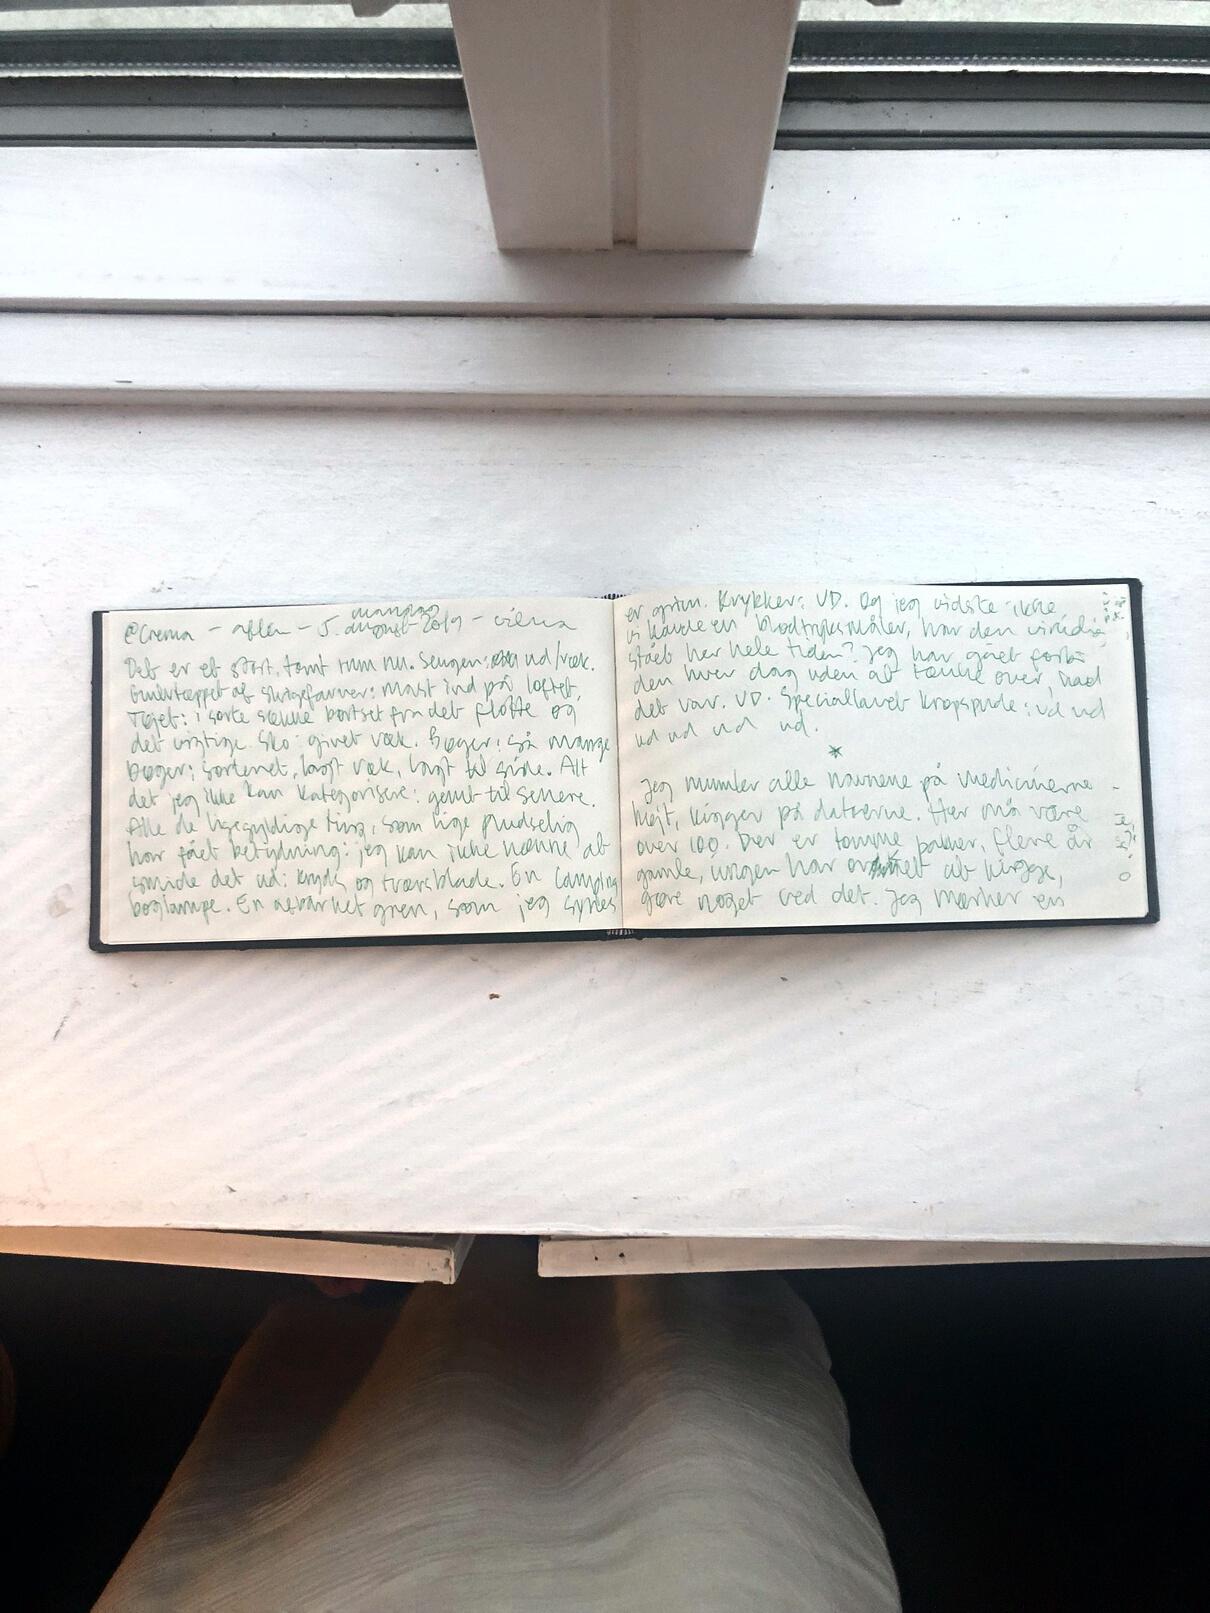 mandag
@Crema - aften - 5. august 2019 - vilma
Det er et stort, tomt rum nu. Sengen: ud/væk.
Gulvtæppet af slutgefarver: mast ind på loftet.
Tøjet: i sorte sække bortset fra det flotte og
det vigtige. Sko: givet væk. Bøger: så mange
bøger: sorteret, lagt væk, lagt til side. Alt
det jeg ikke kan kategorisere: gemt til senere.
Alle de ligegyldige ting, som lige pludselig
har fået betydning: jeg kan ikke nænne at
smide det ud: kryds og tværsblade. En camping
boglampe. En afbarket gren, som jeg synes
er grim. Krykker: UD. Og jeg vidste ikke,
vi havde en blodtryksmåler, har den virkelig
stået her hele tiden? Jeg har gået forbi
den hver dag uden at tænke over, hvad
det var. UD. Speciallavet kropspude: ud ud
ud ud ud ud.
*
Jeg mumler alle navnene på medicinerne
højt, kigger på datoerne. Her må være
over 100. Der er tomme pakker, flere år
gamle, ingen har orket at kigge,
gøre noget ved det. Jeg mærker en